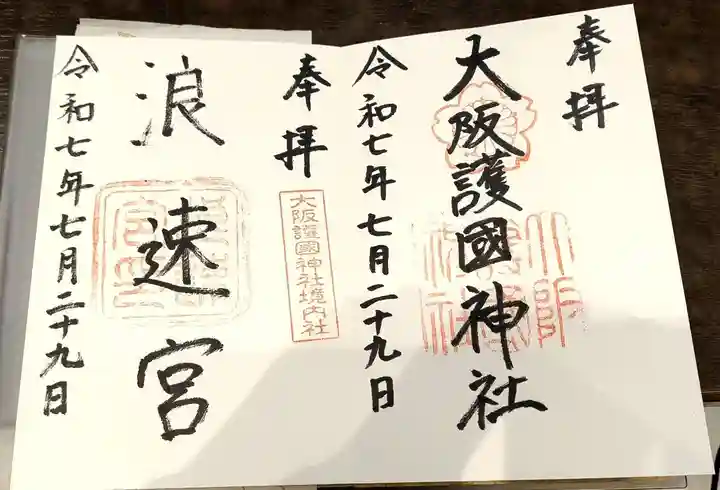 奉拝
大阪護國神社
令和七年七月二十九日
奉拝
大阪護國神社境内社
浪速宮
令和七年七月二十九日